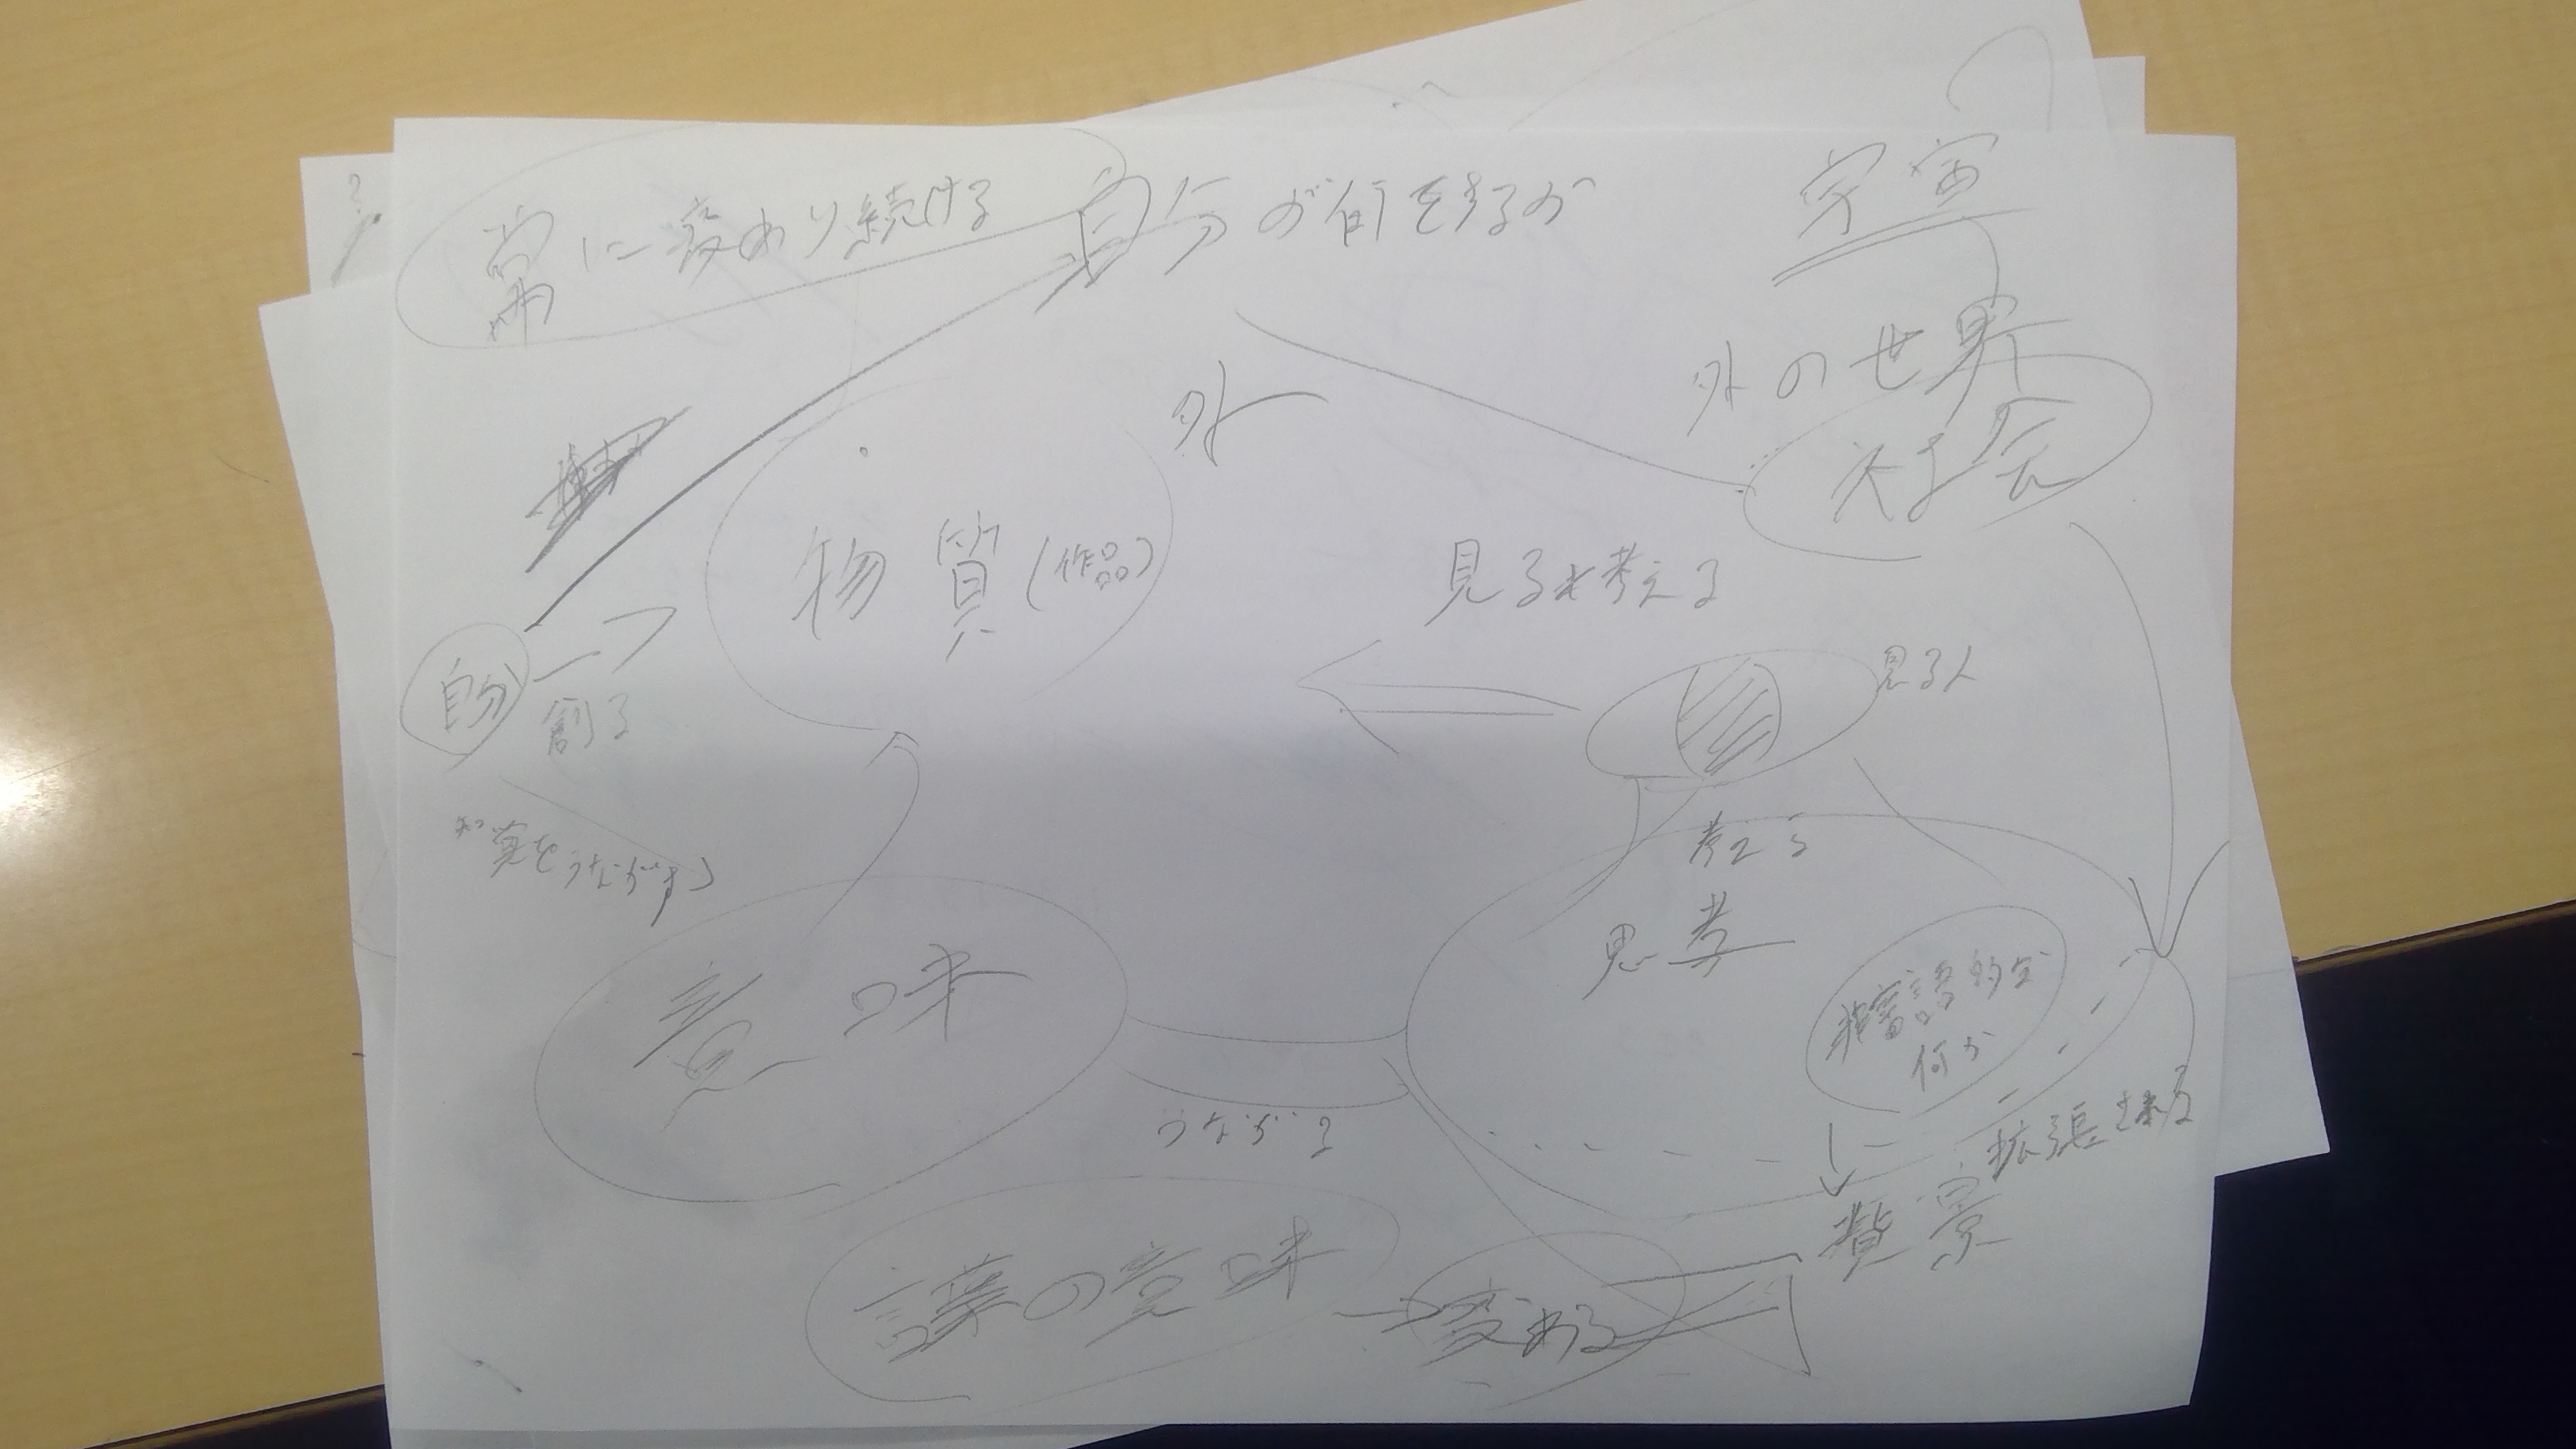 常に変わり続ける
自分が何をするか
宇宙
外の世界
社会
外
物質(作品)
見るも考える
見る人
自分
創る
知覚をうながす
考える
思考
意味
非言語的な
何か
うながす
拡張される
背景
言葉の意味
変わる